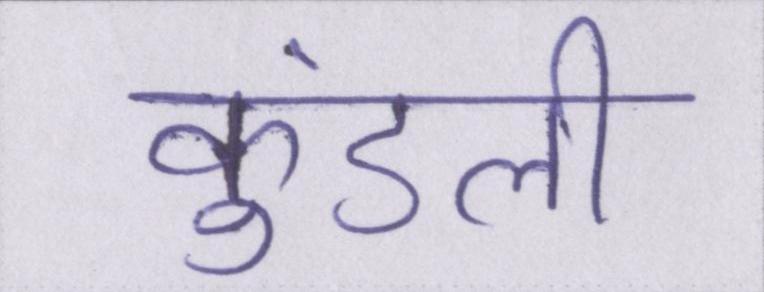 कुंडली